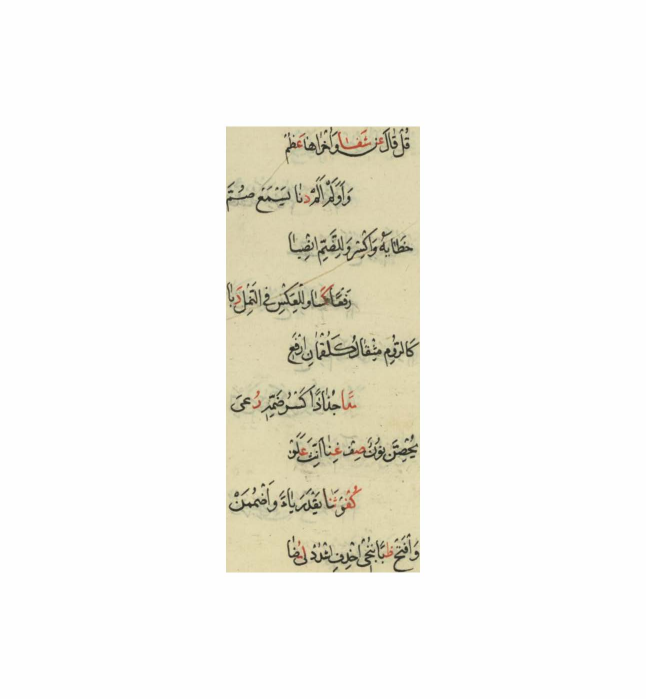 قُلْ قَالَ عَن شَفَا وَأَخِّرَاهَا عَظُمْ
وَأَوَلَمْ أَلَمْ دَنَا يَسْمَعُ ضُمَّ
خِطَابَهُ وَاكْسِرْ وَلِلضَّمِّ انْصِبَا
رَفْعًا كَسَا وَالْعَكْسُ فِي النَّمْلِ دَبَا
كَالرُّومِ مِثْقَالُ كَلُقْمَانَ ارْفَعِ
مَدًا جُذَاذًا كَسْرُ ضَمِّهِ رُعِي
يُحْصِنَ نُونٌ صِفْ غِنًا أَنِّثْ عَلَنْ
كُفْؤٌ ثَنَا يَقْدِرَ يَاءَ وَاضْمُمَنْ
وَافْتَحْ ظُبًا نُنْجِي احْذِفِ اشْدُدْ لِي مَضَا